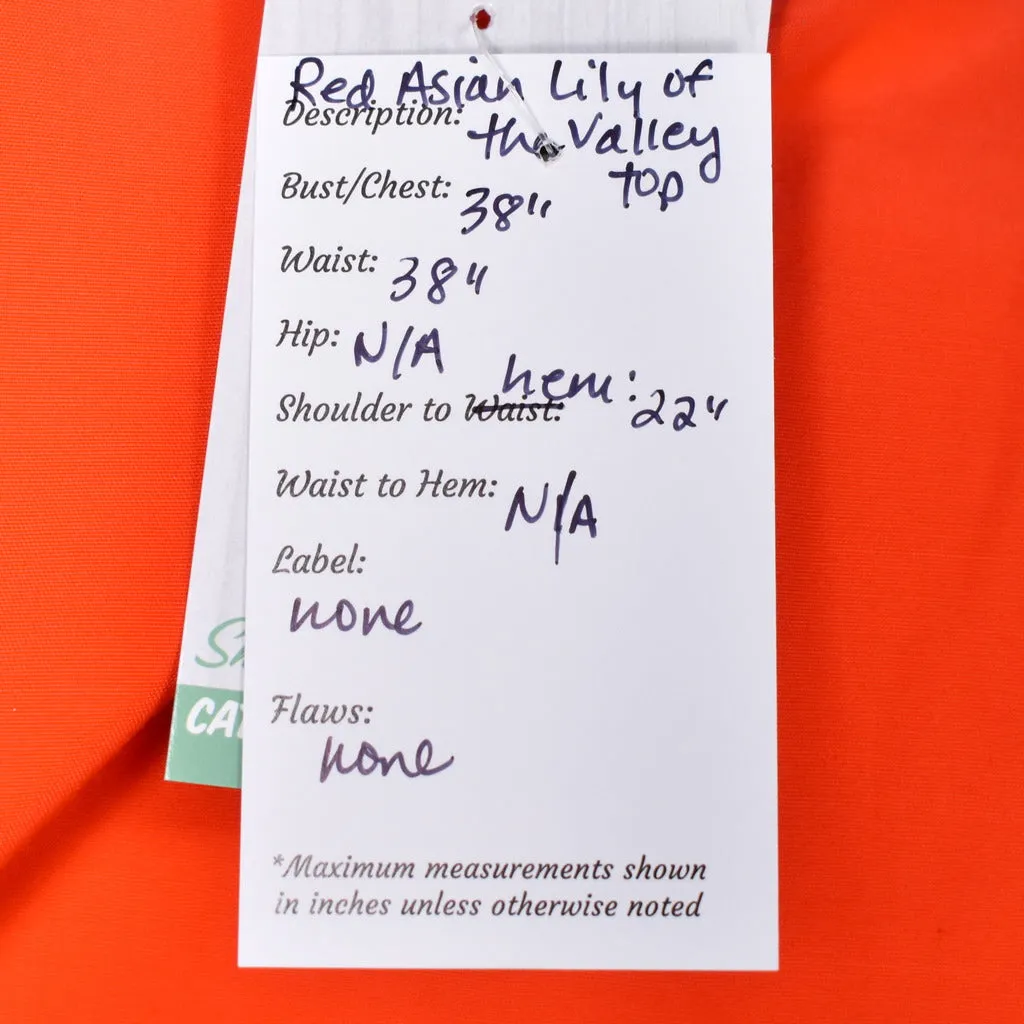 Red Asian Lily of
Description: the Valley
top
Bust/Chest: 38"
Waist: 38"
Hip: N/A
hem:
Shoulder to Waist: 22"
Waist to Hem: N/A
Label:
none
Flaws:
none
*Maximum measurements shown
in inches unless otherwise noted